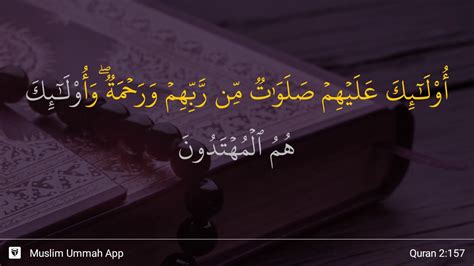 أُو۟لَـٰٓئِكَ عَلَيْهِمْ صَلَوَٰتٌۭ مِّن رَّبِّهِمْ وَرَحْمَةٌۭ ۖ وَأُو۟لَـٰٓئِكَ
هُمُ ٱلْمُهْتَدُونَ
Muslim Ummah App
Quran 2:157